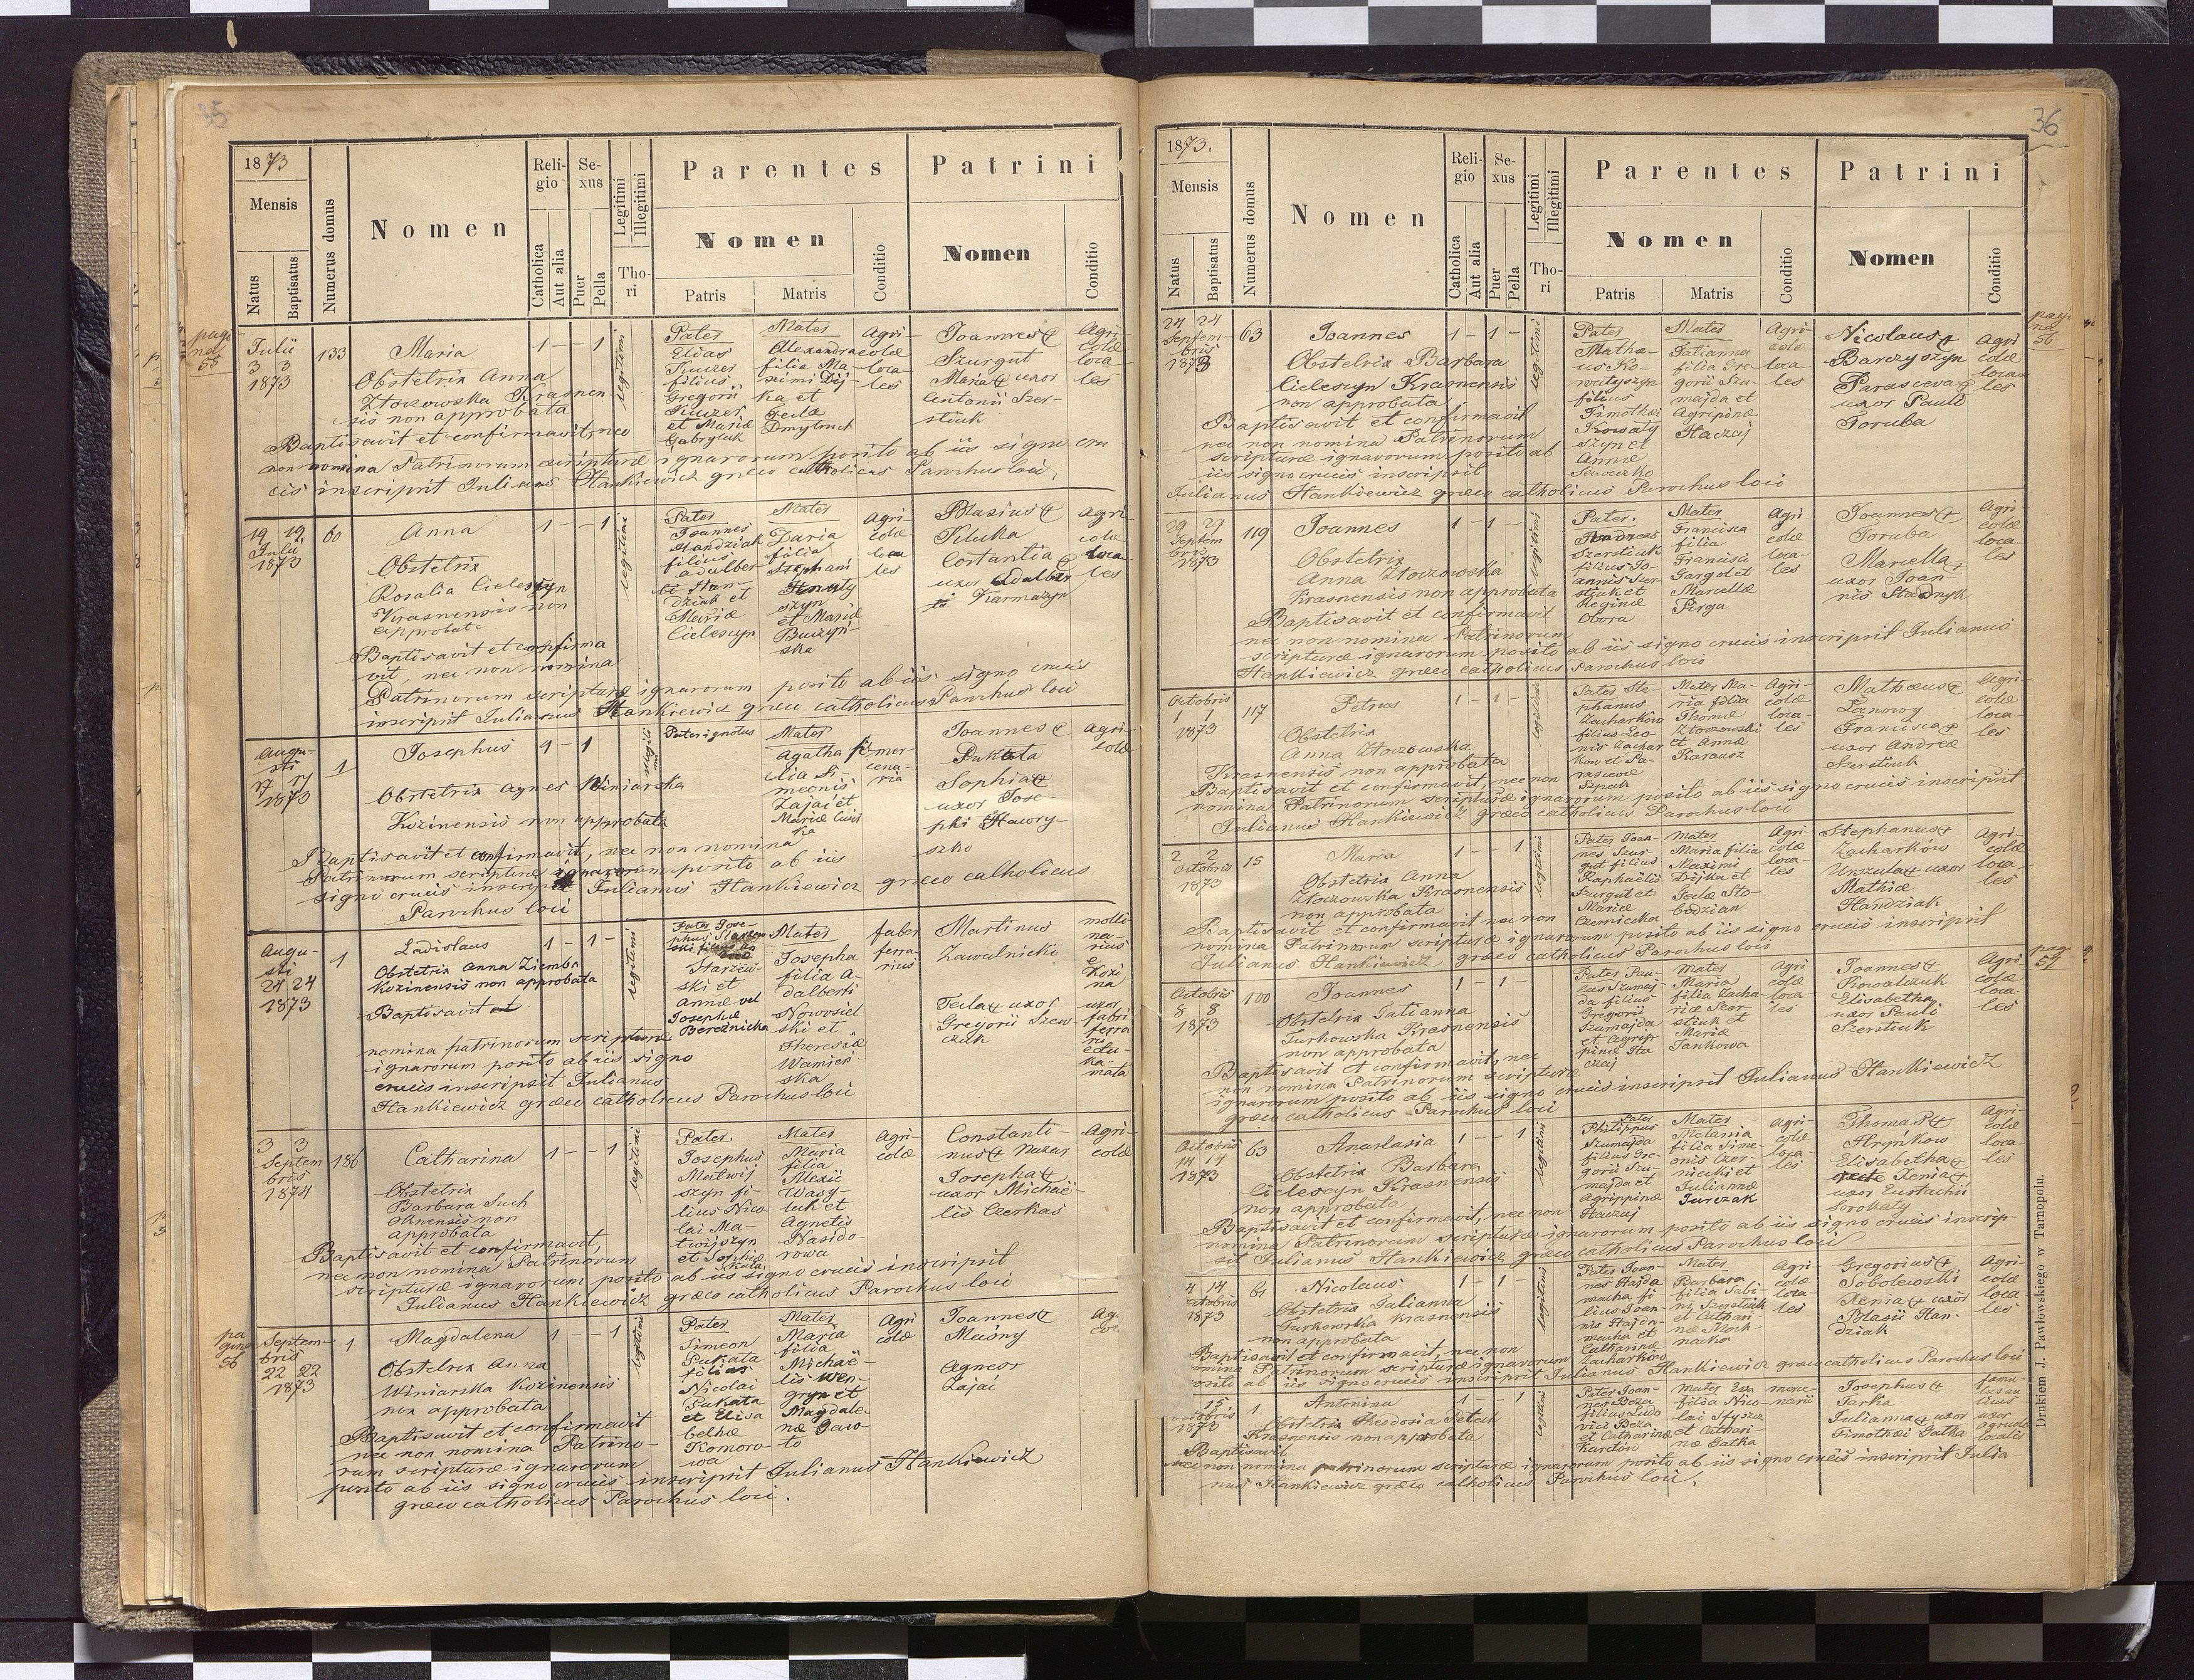 35
1873
Mensis
Natus
Baptisatus
Numerus domus
Nomen
Religio
Catholica
Aut alia
Sexus
Puer
Pella
Legitimi
Illegitimi
Thori
Parentes
Nomen
Patris
Matris
Conditio
Patrini
Nomen
Conditio
pagina 55
Julii
3 3
1873
133
Maria
1 - - 1
legitimi
Obstetrix Anna
Złoczowska Krasnen
sis non approbata
Pater
Elias
Kuczer
filius
Gregorii
Kuczer
et Mariæ
Gabryluk
Mater
Alexandra
filia Ma-
ximi Dij-
ka et
Teclæ
Dmytruch
Agri-
colæ
loca-
les
Joannes &
Szurgut
Maria & uxor
Antonii Szer-
stiuk
Agri-
colæ
loca-
les
Baptisavit et confirmavit, nec
non nomina Patrinorum scripturæ ignarorum posito ab iis signo cru
cis inscripsit Julianus Hankiewicz græco catholicus Parochus loci.
19 19
Julii
1873
60
Anna
1 - - 1
legitimi
Obstetrix
Rosalia Cieleszyn
Krasnensis non
approbata
Pater
Joannes
Handziak
filius
Adalber
ti Han-
dziak et
Mariæ
Cieleszyn
Mater
Daria
filia
Stephani
Hnaty
szyn
et Mariæ
Buczyń-
ska
Agri-
colæ
loca
les
Blasius &
Siluka
Costantia &
uxor Adalber
ti Karmazyn
Agri-
colæ
loca
les
Baptisavit et confirma
vit, nec non nomina
Patrinorum scripturæ ignarorum posito ab iis signo crucis
inscripsit Julianus Hankiewicz græco catholicus Parochus loci
Augu-
sti
17 17
1873
1
Josephus
1 - 1
illegiti
mi
Obstetrix Agnes Winiarska
Kozinensis non approbata
Pater ignotus
Mater
Agatha fi-
lia Si-
meonis
Zając et
Mariæ
mer-
cena-
ria
Joannes &
Pukata
Sophia &
uxor Jose-
phi Hawry-
szko
Agri-
colæ
Baptisavit et confirmavit, nec non nomina
Patrinorum scripturæ ignarorum posito ab iis
signo crucis inscripsit Julianus Hankiewicz græco catholicus
Parochus loci
Augu-
sti
24 24
1873
1
Ladislaus
1 - 1 -
legitimi
Obstetrix Anna Ziemba
Kozinensis non approbata
Baptisavit et
Pater Jose-
phus
Starzew-
ski et
Annæ vel
Josephæ
Bereżnicka
Mater
Josepha
filia A-
dalberti
Nowosiel
ski et
Theresiæ
Wamień-
ska
faber
ferra
rius
Martinus
Zawalnicki
Tecla & uxor
Gregorii Szew-
czuk
molli
na-
rius
e
Kozi
na
uxor
fabri
ferra
rii
nomina patrinorum scripturæ
ignarorum posito ab iis signo
crucis inscripsit Julianus
Hankiewicz græco catholicus Parochus loci
3 3
Septem
bris
1874
186
Catharina
1 - - 1
legitimi
Obstetrix
Barbara Such
Oknensis non
approbata
Pater
Josephus
Matwij
szyn fi-
lius Nico
lai Ma-
twijszyn
et Sophiæ
Kula
Mater
Maria
filia
Alexii
Wasy-
luk et
Agnetis
Nasido-
rowa
Agri-
colæ
Constanti-
nus & Nazar
Josepha &
uxor Michaë-
lis Czerkas
Agri-
colæ
Baptisavit et confirmavit,
nec non nomina Patrinorum
scripturæ ignarorum posito ab iis signo crucis inscripsit
Julianus Hankiewicz græco catholicus Parochus loci
pa
gina
56
Septem-
bris
22 22
1873
1
Magdalena
1 - - 1
legitimi
Obstetrix Anna
Winiarska Kozinensis
non approbata
Pater
Simeon
Pukata
filius
Nicolai
Pukata
et Elisa
bethæ
Komoro-
wa
Mater
Maria
filia
Michaë-
lis Wen-
gryn et
Magdale-
næ Gaw-
to
Agri
colæ
Joannes &
Maśny
Agnes &
Zając
Ag.
co
Baptisavit et confirmavit
nec non nomina Patrino-
rum scripturæ ignarorum
posito ab iis signo crucis inscripsit Julianus Hankiewicz
græco catholicus Parochus loci.
36
1873.
Mensis
Natus
Baptisatus
Numerus domus
Nomen
Religio
Catholica
Aut alia
Sexus
Puer
Pella
Legitimi
Illegitimi
Thori
Parentes
Nomen
Patris
Matris
Conditio
Patrini
Nomen
Conditio
pagi
na
56
24 24
Septem-
bris
1873
63
Joannes
1 - 1 -
legitimi
Obstetrix Barbara
Cieleszyn Krasnensis
non approbata
Pater
Mathæ-
us Ko-
watyszyn
filius
Timothei
Kowaty
szyn et
Annæ
Szewczko
Mater
Tatianna
filia Gre-
gorii Szu-
majda et
Agripinæ
Haczaj
Agri-
colæ
loca-
les
Nicolaus &
Barczyszyn
Parasceva &
uxor Pauli
Toruba
Agri
colæ
loca
les
Baptisavit et confirmavit
nec non nomina Patrinorum
scripturæ ignarorum posito ab
iis signo crucis inscripsit
Julianus Hankiewicz græco catholicus Parochus loci
29 29
Septem
bris
1873
119
Joannes
1 - 1 -
legitimi
Obstetrix
Anna Złoczowska
Krasnensis non approbata
Pater.
Andreas
Szerstiuk
filius Jo-
annis Szer-
stiuk et
Reginæ
Obora
Mater
Francisca
filia
Francisci
Gargol et
Marcellæ
Pirga
Agri-
colæ
loca-
les
Joannes &
Toruba
Marcella &
uxor Joan-
nis Stadnyk
Agri
colæ
loca-
les
Baptisavit et confirmavit
nec non nomina Patrinorum
scripturæ ignarorum posito ab iis signo crucis inscripsit Julianus
Hankiewicz græco catholicus Parochus loci
Octobris
1 1
1873
117
Petrus
1 - 1 -
legitimi
Obstetrix
Anna Złoczowska
Krasnensis non approbata
Pater Ste-
phanus
Zacharków
filius Leo-
nis Zachar
ków et Pa-
rascevæ
Szpak
Mater Ma-
ria filia
Thomæ
Złoczowski
et Annæ
Karausz
Agri-
colæ
loca-
les
Mathæus &
Łanowy
Francisca &
uxor Andreæ
Szerstiuk
Agri-
colæ
loca-
les
Baptisavit et confirmavit, nec non
nomina Patrinorum scripturæ ignarorum posito ab iis signo crucis inscripsit
Julianus Hankiewicz græco catholicus Parochus loci
2 2
Octobris
1873
15
Maria
1 - - 1
legitimi
Obstetrix Anna
Złoczowska Krasnensis
non approbata
Pater Joan-
nes Szur-
gut filius
Raphaëlis
Szurgut et
Mariæ
Czerniecka
Mater
Maria filia
Maximi
Dijka et
Teclæ Sto-
bodzian
Agri
colæ
loca-
les
Stephanus &
Zacharków
Urszula & uxor
Mathiæ
Handziak
Agri-
colæ
loca-
les
Baptisavit et confirmavit nec non
nomina Patrinorum scripturæ ignarorum posito ab iis signo crucis inscripsit
Julianus Hankiewicz græco catholicus Parochus loci
pag.
57
Octobris
8 8
1873
100
Joannes
1 - 1 -
Obstetrix Tatianna
Turkowska Krasnensis
non approbata
Pater Pau-
lus Szumaj-
da filius
Gregorii
Szumajda
et Agrip
pinæ Ha
czaj
Mater
Maria
filia Zacha-
riæ Szer-
stiuk et
Mariæ
Jankowa
Agri
colæ
loca-
les
Joannes &
Kowalczuk
Elisabetha
uxor Pauli
Szerstiuk
Agri
colæ
loca-
les
Baptisavit et confirmavit, nec
non nomina Patrinorum scripturæ
ignarorum posito ab iis signo crucis inscripsit Julianus Hankiewicz
græco catholicus Parochus loci
Octobris
14 14
1873
63
Anastasia
1 - - 1
legitimi
Obstetrix Barbara
Cieleszyn Krasnensis
non approbata
Pater
Philippus
Szumajda
filius Gre-
gorii Szu-
majda et
Agrippinæ
Haczaj
Mater
Melania
filia Sime-
onis Czer-
niecki et
Juliannæ
Jurczak
agri-
colæ
loca-
les
Thomas &
Hrynkow
Elisabetha &
recte Xenia &
uxor Eustachii
Sorokaty
Agri-
colæ
loca-
les
Baptisavit et confirmavit, nec non
nomina Patrinorum scripturæ ignarorum posito ab iis signo crucis inscrip-
sit Julianus Hankiewicz græco catholicus Parochus loci
4 14
Octobris
1873
61
Nicolaus
1 - 1 -
legitimi
Obstetrix Tatianna
Turkowska Krasnensis
non approbata
Pater Joan-
nes Hajda-
macha fi-
lius Joan-
nis Hajda-
macha et
Catharinæ
Zacharków
Mater
Barbara
filia Sabi-
ni Szerstiuk
et Cathari-
næ Moch-
nacka
Agri-
colæ
loca-
les
Gregorius &
Sobolewski
Xenia & uxor
Blasii Han-
dziak
Agri-
colæ
loca
les
Baptisavit et confirmavit, nec non
omina Patrinorum scripturæ ignarorum
osito ab iis signo crucis inscripsit Julianus Hankiewicz græco catholicus Parochus loci
15
Octobris
1873
1
Antonina
1 - - 1
legitimi
Obstetrix Theodosia Petech
Krasnensis non approbata
Pater Joan-
nes Beza
filius Ludo
vici Beza
et Catharinæ
Kardów
Mater Eva
filia Nico-
lai
et Cathari-
næ Gatka
Josephus &
Tarka
Julianna & uxor
Timothei Gatka
famu-
lus
uxor
agricolæ
localis
Baptisavit
nec non nomina patrinorum scripturæ ignarorum posito ab iis signo crucis inscripsit Julia
nus Hankiewicz græco catholicus Parochus loci.
Drukiem J. Pawłowskiego w Tarnopolu.